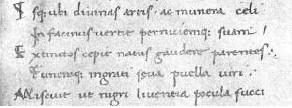 ubi divinas artis · ac munera celi
In facinus vertit perniciemq; suam
Extinctos cepit natus gaudere parentes
Funeraq; ingrati seva puella viri ·
Miscuit ut nigri liventia pocula succi